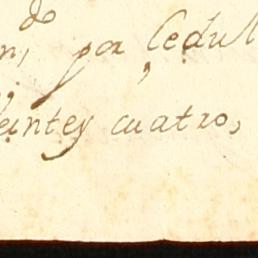 do
n, por Cedul
eintey cuatro,